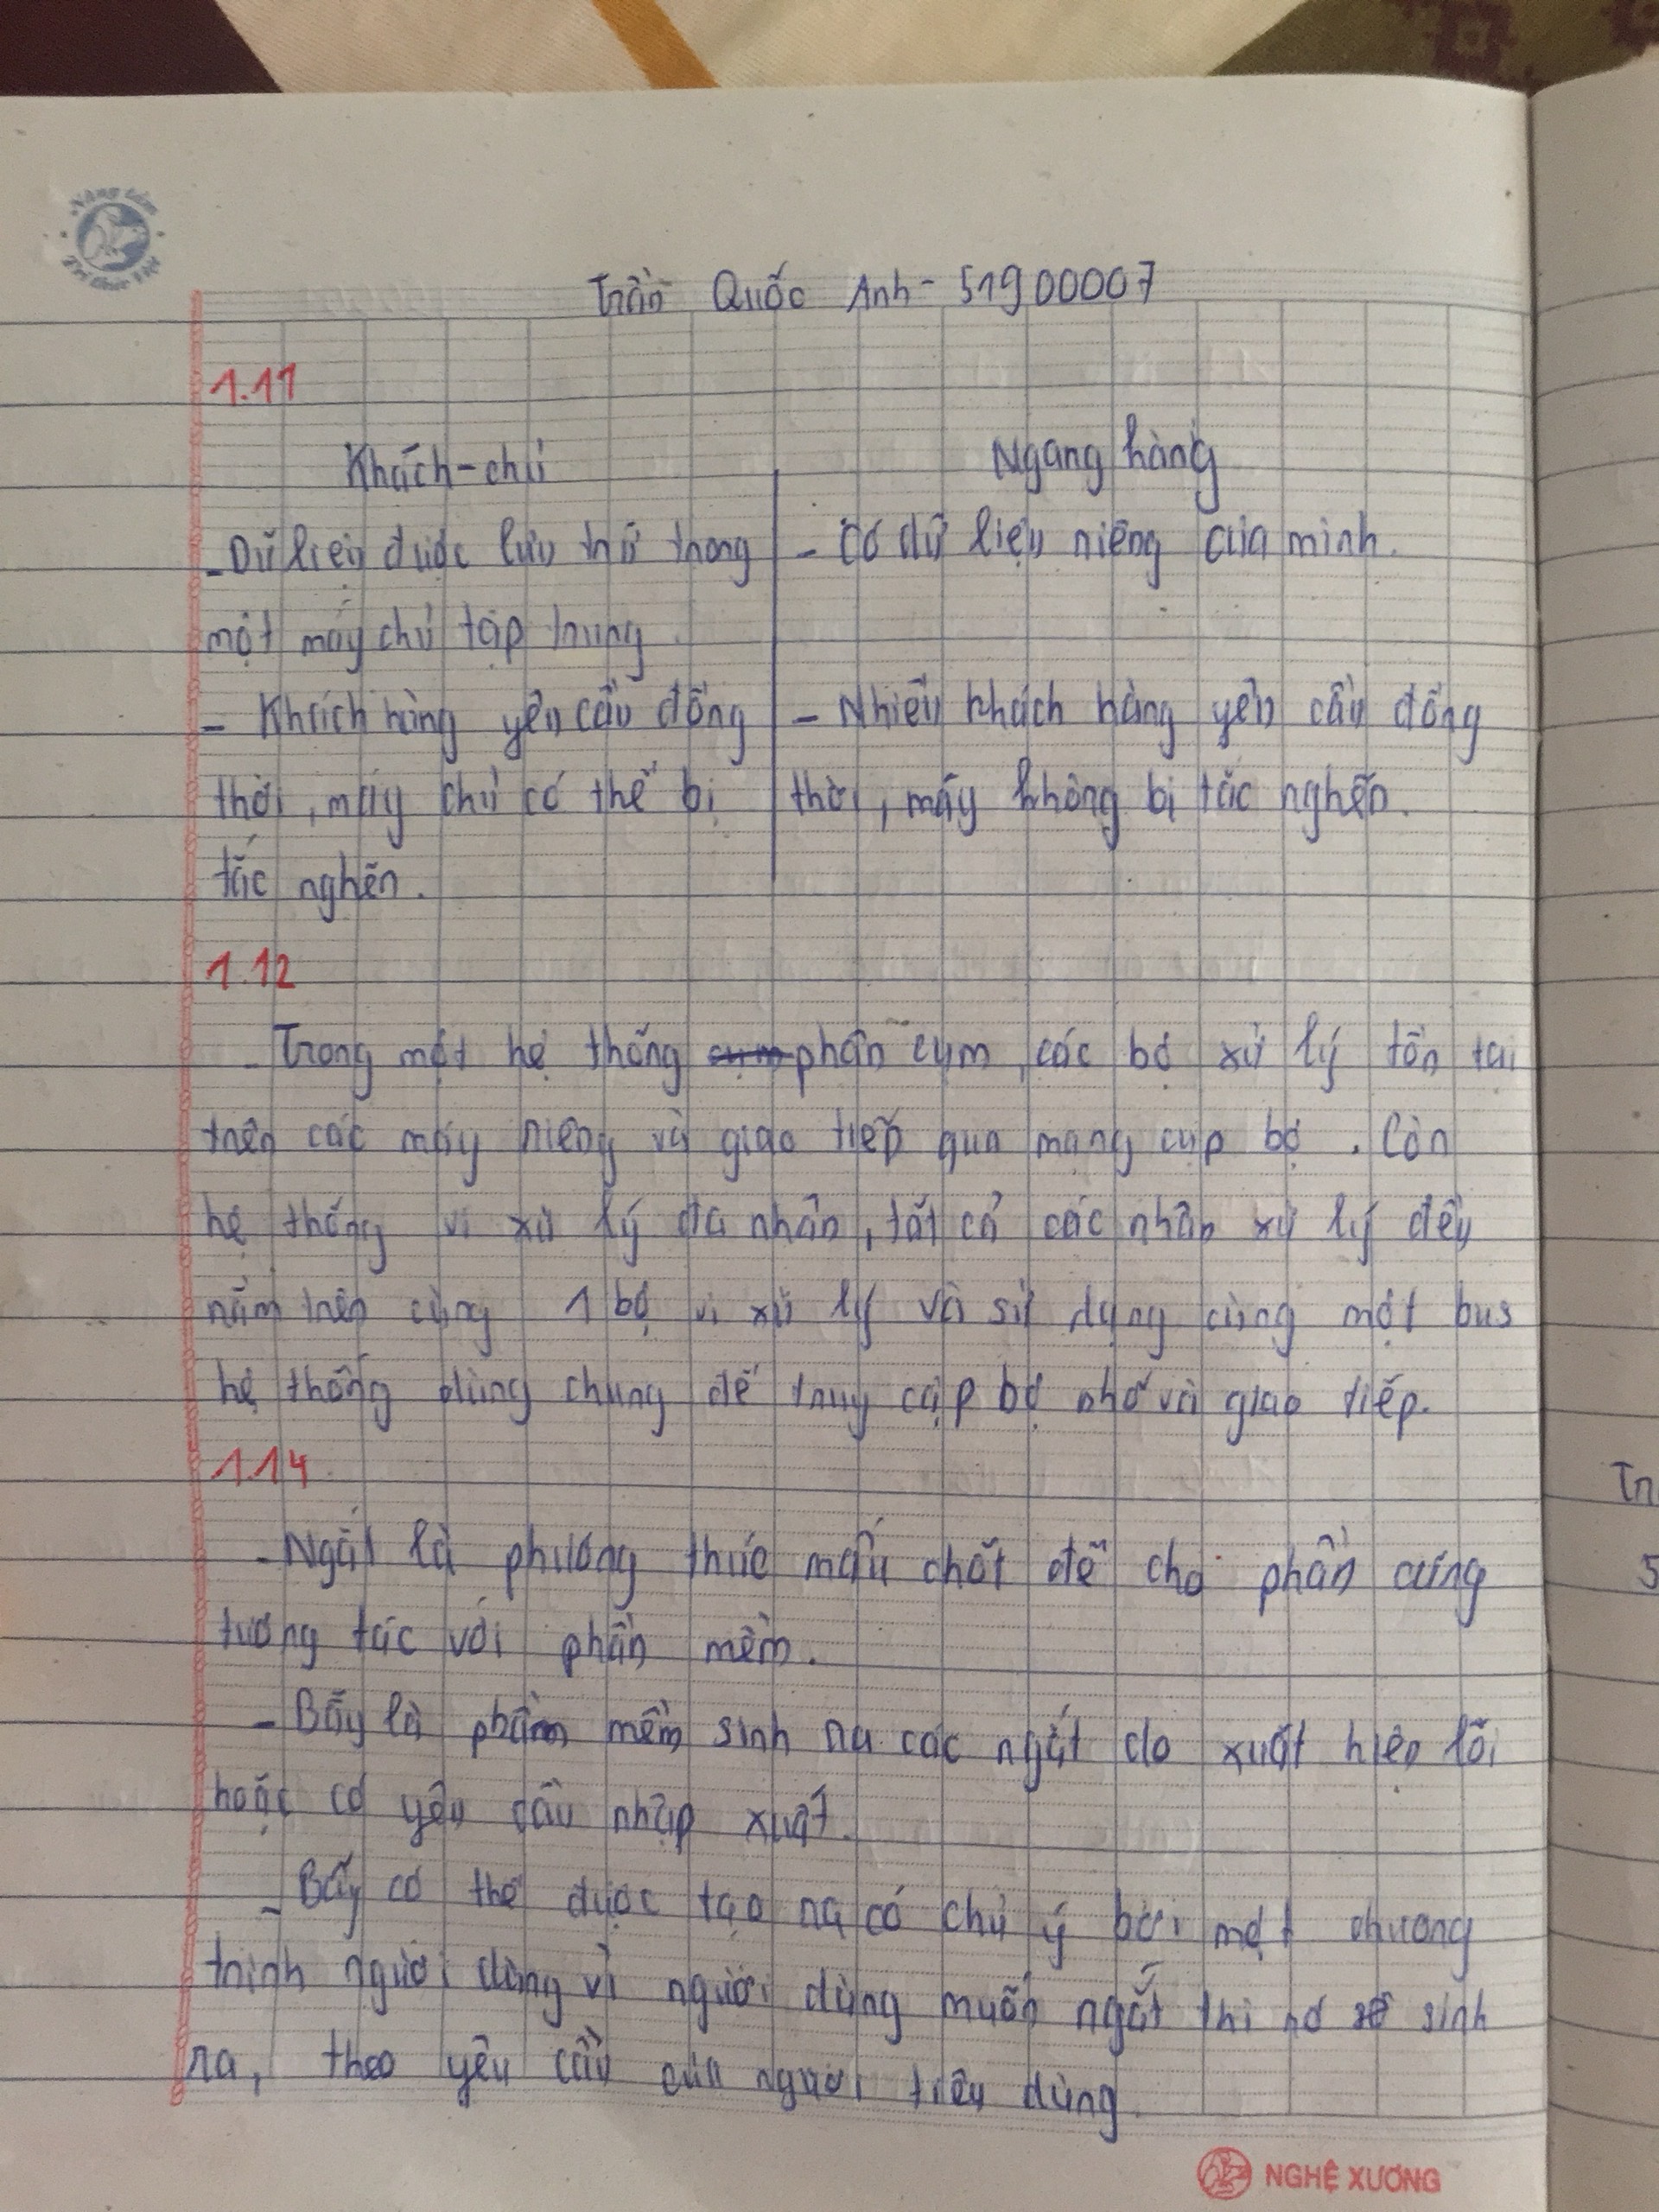 Nâng tầm
Trí thức Việt
Trần Quốc Anh - 51900007
1.11
Khách - chủ
Ngang hàng
- Dữ liệu được lưu trữ trong
một máy chủ tập trung.
- Khách hàng yêu cầu đồng
thời, máy chủ có thể bị
tắc nghẽn.
- Có dữ liệu riêng của mình.
- Nhiều khách hàng yêu cầu đồng
thời, máy không bị tắc nghẽn.
1.12
- Trong một hệ thống phân cụm, các bộ xử lý tồn tại
trên các máy riêng và giao tiếp qua mạng cụp bộ. Còn
hệ thống vi xử lý đa nhân, tất cả các nhân xử lý đều
nằm trên cùng 1 bộ vi xử lý và sử dụng cùng một bus
hệ thống dùng chung để truy cập bộ nhớ và giao tiếp.
1.14
- Ngắt là phương thức mấu chốt để cho phần cứng
tương tác với phần mềm.
- Bẫy là phần mềm sinh ra các ngắt do xuất hiện lỗi
hoặc có yêu cầu nhập xuất.
- Bẫy có thể được tạo ra có chủ ý bởi một chương
trình người dùng vì người dùng muốn ngắt thì nó sẽ sinh
ra, theo yêu cầu của người tiêu dùng
Tr
5
NGHỆ XƯƠNG